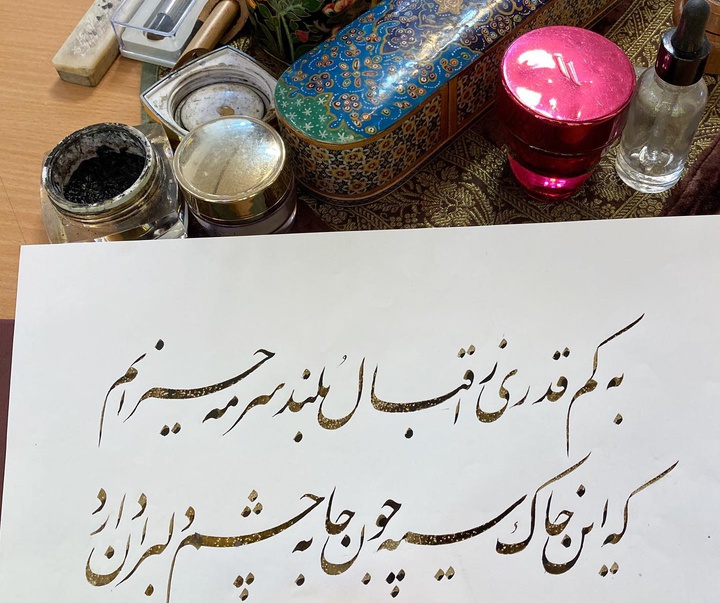 به کم قدری ز اقبال بلُند سرمه حیرانم
که این خاک سیه چون جا به چشم دلبران دارد